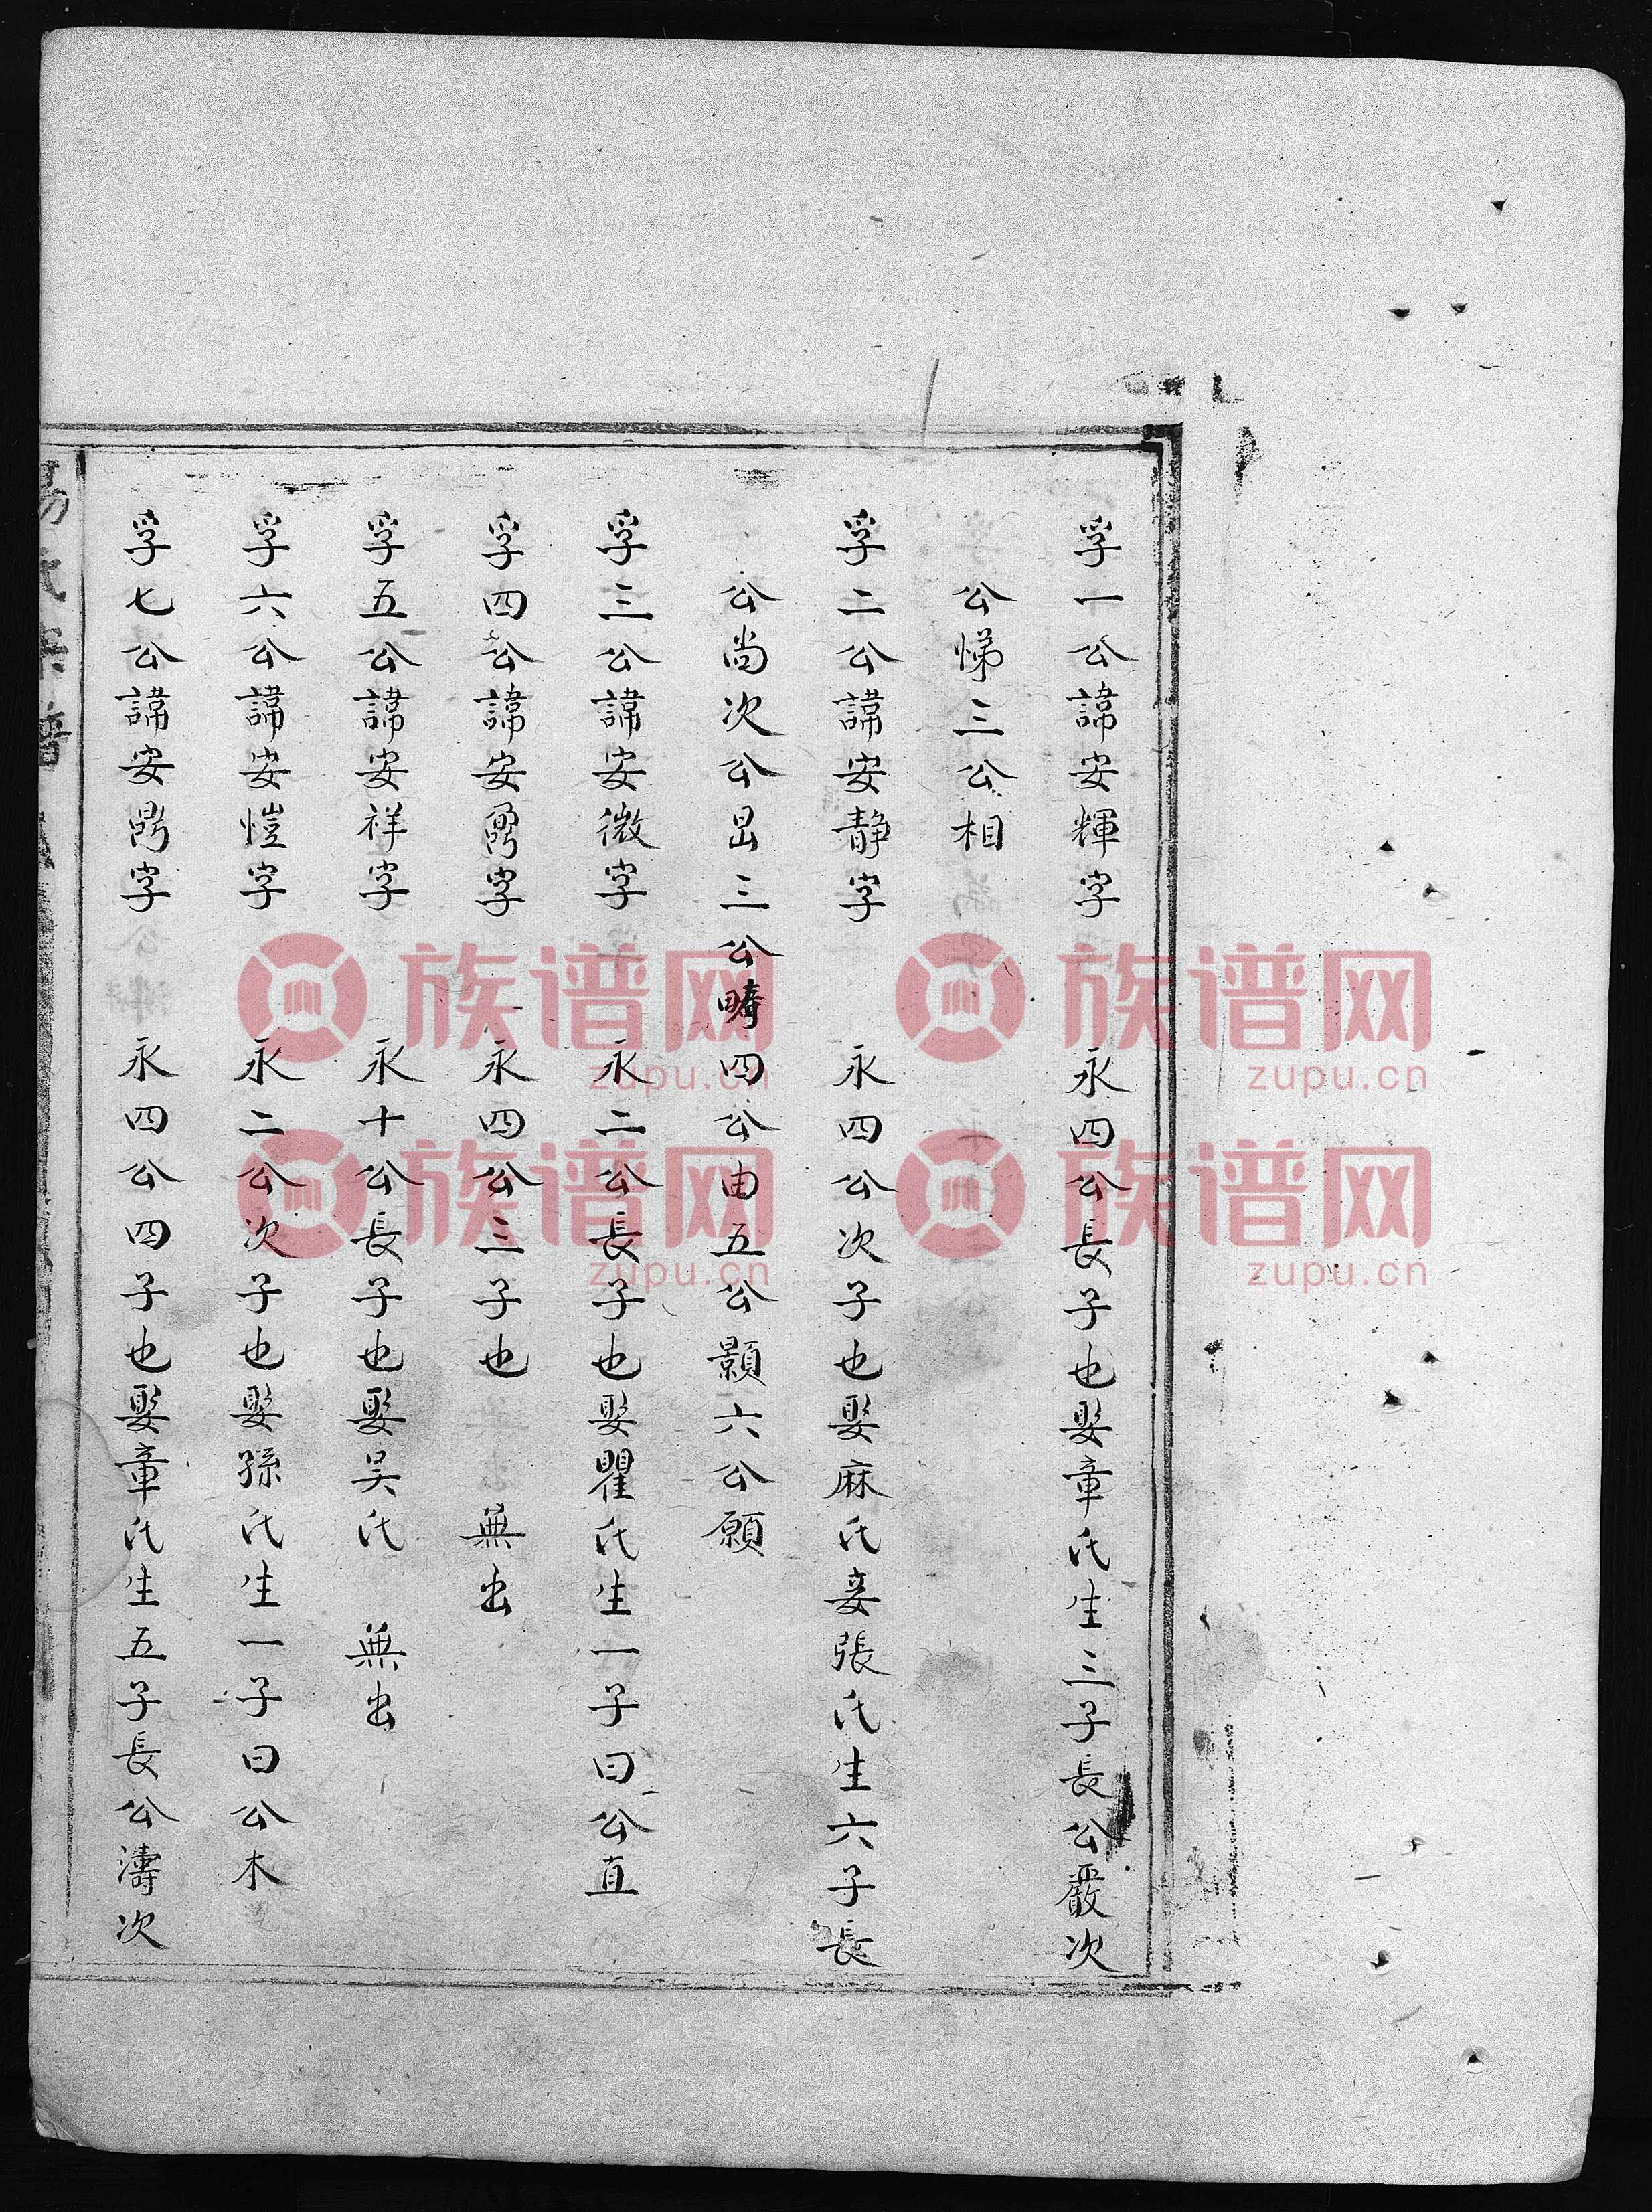 孚一公諱安輝字 永四公長子也娶章氏生三子長公嚴次
公悌三公相
孚二公諱安靜字 永四公次子也娶麻氏妾張氏生六子長
公尚次公昆三公疇四公由五公顥六公願
孚三公諱安微字 永二公長子也娶瞿氏生一子曰公直
孚四公諱安 字 永四公三子也 無出
孚五公諱安祥字 永十公長子也娶吴氏 無出
孚六公諱安愷字 永二公次子也娶孫氏生一子曰公木
孚七公諱安 字 永四公四子也娶章氏生五子長公濤次
族谱网
zupu.cn
族谱网
zupu.cn
族谱网
zupu.cn
族谱网
zupu.cn